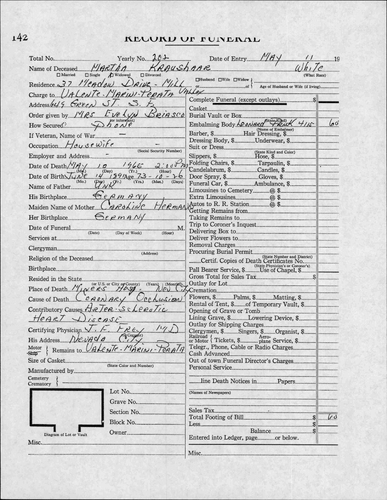 142
RECORD OF FUNERAL
Total No. Yearly No. 202 Date of Entry MAY 11 19
Name of Deceased MARTHA KRAUSHAAR White
Married Single Widowed Divorced Husband Wife Widow (What Race)
Residence 37 Meadow Drive - Mill Valley Age of Husband or Wife (if living)
Charge to VALENTE-MARINI-PERATA
Address 649 GREEN ST S.F.
Order given by MRS EVELYN BRIASCO
How Secured Phone
If Veteran, Name of War
Occupation Housewife
(Social Security Number)
Employer and Address
Date of Death MAY 10
Date of Birth JUNE 14 1890 Age 73-10-26
Name of Father UNK
His Birthplace GERMANY
Maiden Name of Mother CAROLINE HERMANN
Her Birthplace GERMANY
Date of Funeral
(Mo.) (Day) (Year) (Hour)
Services at
Clergyman
Religion of the Deceased
Birthplace
Resided in the State
Place of Death MINERS HOSP. NEV CITY
Cause of Death CORONARY OCCLUSION
Contributory Causes ARTERIOSCLEROTIC
HEART DISEASE
Certifying Physician J. F. FREY MD
His Address NEVADA CITY
Motor Remains to VALENTE-MARINI-PERATA
Size of Casket
(State Color and Number)
Manufactured by
Cemetery
Crematory
Lot No.
Grave No.
Section No.
Block No.
Owner
Diagram of Lot or Vault
Misc.
Complete Funeral (except outlays) $
Burial Vault or Box
Embalming Body 60
(Name of Embalmer)
Barber, $ Hair Dressing, $
Dressing Body, $ Underwear, $
Suit or Dress
(State Kind and Color)
Slippers, $ Hose, $
Folding Chairs, $ Tarpaulin, $
Candelabrum, $ Candles, $
Door Spray, $ Gloves, $
Funeral Car, $ Ambulance, $
Limousines to Cemetery @ $
Extra Limousines @ $
Autos to R. R. Station @ $
Getting Remains from
Taking Remains to
Trip to Coroner's Inquest
Delivering Box to
Deliver Flowers to
Removal Charges
Procuring Burial Permit
(State Number and District)
Certif. Copies of Death Certificates No.
Pall Bearer Service, $ Use of Chapel, $
Gross Total for Sales Tax $
Outlay for Lot
Cremation
Flowers, $ Palms, $ Matting, $
Rental of Tent, $ of Temporary Vault, $
Opening of Grave or Tomb
Lining Grave, $ Lowering Device, $
Outlay for Shipping Charges
Clergymen, $ Singers, $ Organist, $
Railroad or Motor Tickets, $ Aeroplane Service, $
Telegr., Phone, Cable or Radio Charges
Cash Advanced
Out of town Funeral Director's Charges
Personal Service
line Death Notices in Papers
(Names of Newspapers)
Sales Tax $
Total Footing of Bill $ 60
Less $
Balance $
Entered into Ledger, page or below.
Misc.